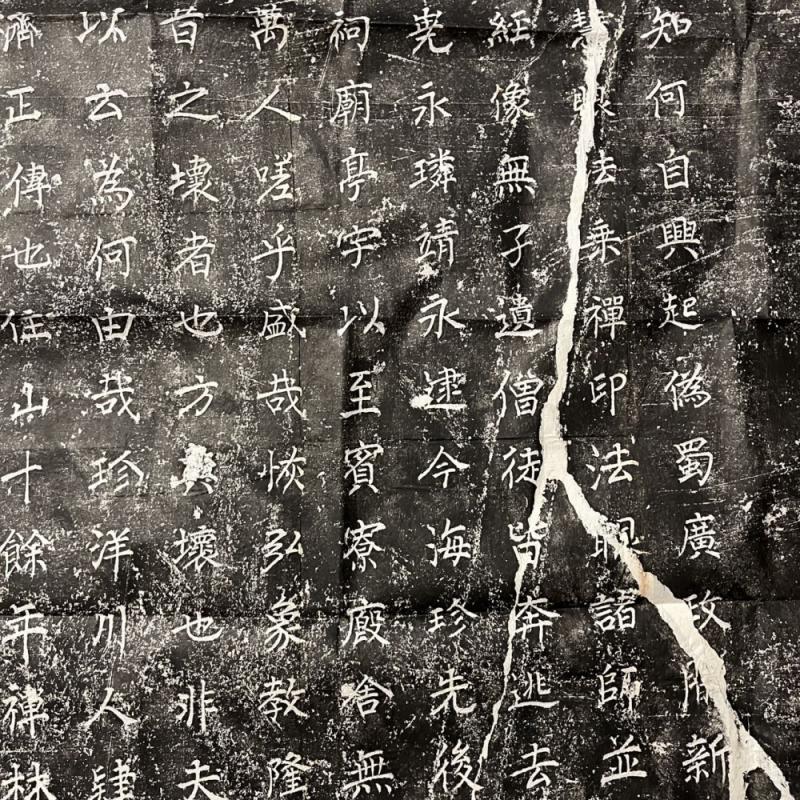 知何自興起偽蜀廣政開新
慧眼法乘禪印法眼諸師並
經像無子遺僧徒皆奔逃去
堯永璘靖永逮今海珍先後
祠廟亭宇以至賓寮廄舍無
萬人嗟乎盛哉恢弘象教隆
昔之壞者也方興壞也非夫
以玄為何由哉珍洋川人肄
濟正傳也住山十餘年禪林